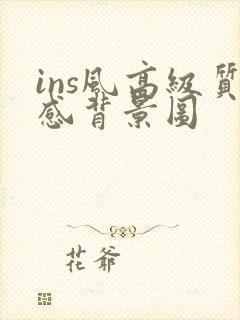 ins風高級質
感背景圖
花爺